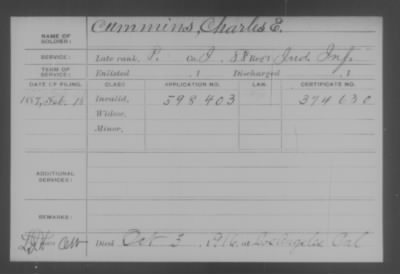 NAME OF SOLDIER: Cummins, Charles E.
SERVICE: Late rank, P. Co. I, 88 Reg't Ind. Inf.
TERM OF SERVICE: Enlisted , 1 Discharged , 1
DATE OF FILING. CLASS. APPLICATION NO. LAW. CERTIFICATE NO.
1887, Feb. 18 Invalid, 598 403 374 630
Widow,
Minor,
ADDITIONAL SERVICES:
REMARKS:
Died Oct 3, 1916, at Los Angeles Cal